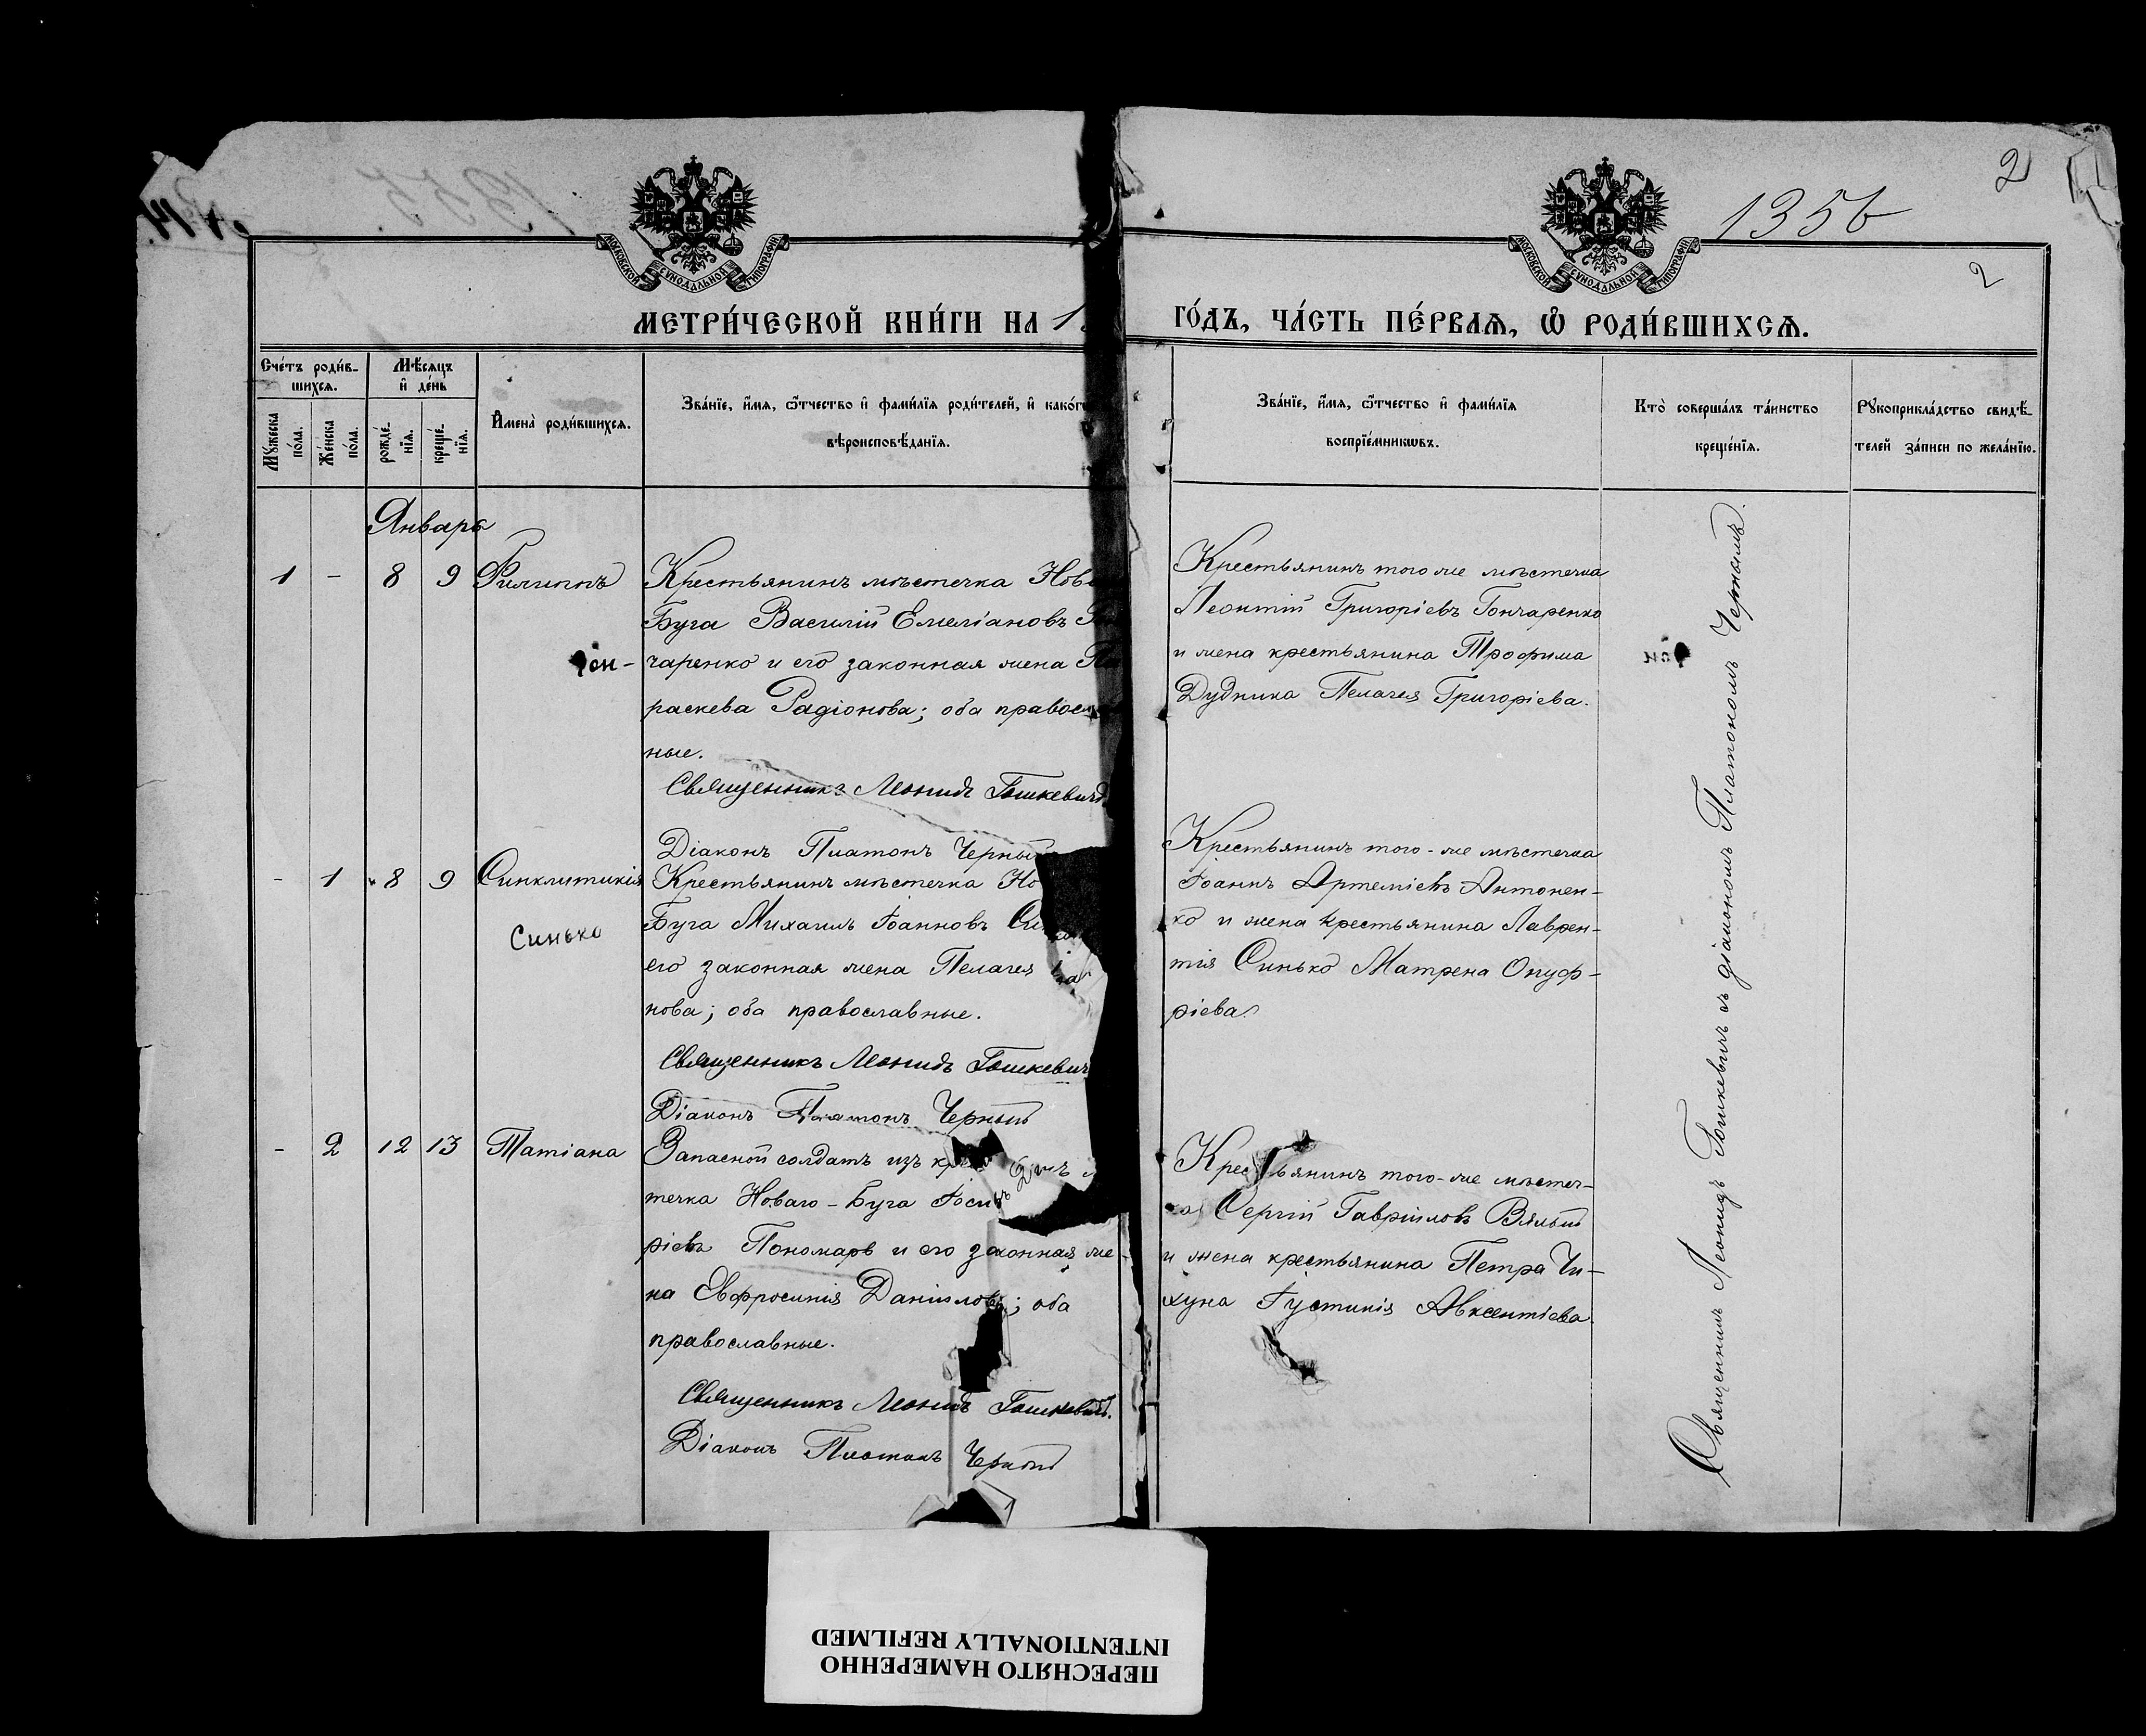 2
1356
2
МОСКОВСКОЙ СѴНОДАЛЬНОЙ ТИПОГРАФІИ
МОСКОВСКОЙ СѴНОДАЛЬНОЙ ТИПОГРАФІИ
МЕТРИ́ЧЕСКОЙ КНИ́ГИ НА 1
ГО́ДЪ, ЧА́СТЬ ПЕ́РВАѦ, Ѡ҆ РОДИ́ВШИХСѦ.
Сче́тъ роди́в-
шихсѧ.
Мꙋ́жеска
по́ла.
Же́нска
по́ла.
Мѣ́сѧцъ
и҆ де́нь
рожде́-
нїѧ.
креще́-
нїѧ.
И҆мена̀ роди́вшихсѧ.
Зва́нїе, и҆́мѧ, ѻ҆́тчество и҆ фами́лїѧ роди́телей, и҆ како́г
вѣроисповѣ́данїѧ.
Зва́нїе, и҆́мѧ, ѻ҆́тчество и҆ фами́лїѧ
воспрїе́мникѡвъ.
Кто̀ соверша́лъ та́инство
креще́нїѧ.
Рꙋкоприкла́дство свидѣ́-
телей за́писи по жела́нїю.
Января
1 - 8 9 Филиппъ
Гон-
Крестьянинъ мѣстечка Нов
Буга Василій Емеліановъ
чаренко и его законная жена Па
раскева Радіонова; оба правосл
ные.
Священникъ Леонидъ Гошкевичъ
Діаконъ Платонъ Черный
Крестьянинъ того же мѣстечка
Леонтій Григоріевъ Гончаренко
и жена крестьянина Трофима
Дудника Пелагея Григоріева.
- 1 8 9 Синклитикія
Синько
Крестьянинъ мѣстечка Но
Буга Михаилъ Іоанновъ Си
его законная жена Пелагея
нова; оба православные.
Священникъ Леонидъ Гошкевич
Діаконъ Платонъ Черный
Крестьянинъ того-же мѣстечка
Іоаннъ Артеміевъ Антонен-
ко и жена крестьянина Лаврен-
тія Синько Матрена Онуф-
ріева.
- 2 12 13 Татіана
Запасной солдатъ изъ кр
течка Новаго-Буга Іоси
ріевъ Пономарь и его законная же-
на Евфросинія Даніилова; оба
православные.
Священникъ Леонидъ Гошкевичъ.
Діаконъ Платонъ Черный
Крестьянинъ того-же мѣстеч-
ка Сергій Гавріиловъ Вялый
и жена крестьянина Петра Чи-
хуна Іустинія Авксентіева.
Священникъ Леонидъ Гошкевичъ съ діакономъ Платономъ Чернымъ.
ПЕРЕСНЯТО НАМЕРЕННО
INTENTIONALLY REFILMED